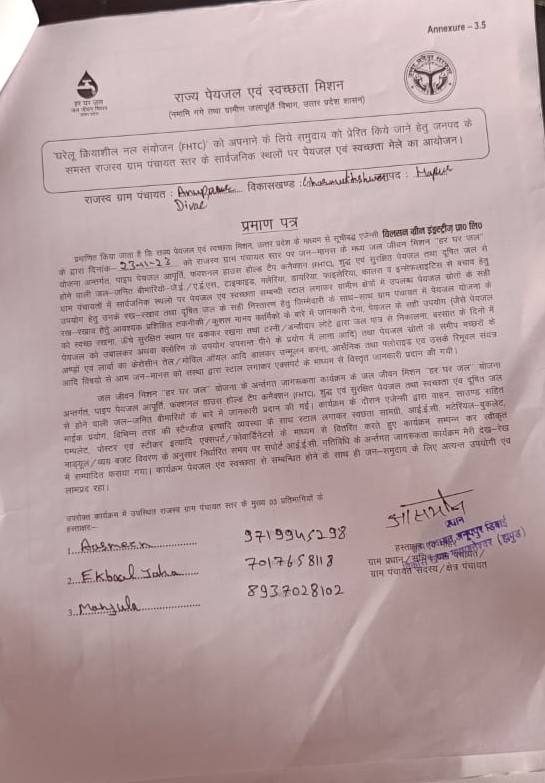 Annexure – 3.5
हर घर जल
जल जीवन मिशन
राज्य पेयजल एवं स्वच्छता मिशन
(नमामि गंगे तथा ग्रामीण जलापूर्ति विभाग, उत्तर प्रदेश शासन)
'घरेलू क्रियाशील नल संयोजन (FHTC)' को अपनाने के लिये समुदाय को प्रेरित किये जाने हेतु जनपद के
समस्त राजस्व ग्राम पंचायत स्तर के सार्वजनिक स्थलों पर पेयजल एवं स्वच्छता मेले का आयोजन।
राजस्व ग्राम पंचायत : विकासखण्ड : जनपद : Hapur
प्रमाण पत्र
प्रमाणित किया जाता है कि राज्य पेयजल एवं स्वच्छता मिशन, उत्तर प्रदेश के माध्यम से सूचीबद्ध एजेन्सी विलसन ग्रीन इंडस्ट्रीज प्रा० लि०
के द्वारा दिनांक 23-11-23 को राजस्व ग्राम पंचायत स्तर पर जन–मानस के मध्य जल जीवन मिशन "हर घर जल"
योजना अन्तर्गत, पाइप पेयजल आपूर्ति, फंक्शनल हाउस होल्ड टैप कनेक्शन (FHTC), शुद्ध एवं सुरक्षित पेयजल तथा दूषित जल से
होने वाली जल–जनित बीमारियों–जे.ई./ए.ई.एस, टाइफाइड, मलेरिया, डायरिया, फाइलेरिया, कालरा व इन्सेफलाइटिस से बचाव हेतु
ग्राम पंचायतों में सार्वजनिक स्थलों पर पेयजल एवं स्वच्छता सम्बन्धी स्टाल लगाकर ग्रामीण क्षेत्रों में उपलब्ध पेयजल स्रोतों के सही
उपयोग हेतु उनके रख–रखाव तथा दूषित जल के सही निस्तारण हेतु जिम्मेदारी के साथ–साथ ग्राम पंचायत में पेयजल योजना के
रख–रखाव हेतु आवश्यक प्रशिक्षित तकनीकी/कुशल मानव कार्मिकों के बारे में जानकारी देना, पेयजल के सही उपयोग (जैसे पेयजल
को स्वच्छ रखना, ऊँचे सुरक्षित स्थान पर ढककर रखना तथा टस्नी/डन्डीदार लोटे द्वारा जल पात्र से निकालना, बरसात के दिनों में
पेयजल को उबालकर अथवा क्लोरिन के उपयोग उपरान्त पीने के प्रयोग में लाना आदि) तथा पेयजल स्रोतों के समीप मच्छरों के
अण्डों एवं लार्वा का केरोसीन तेल/मोबिल ऑयल आदि डालकर उन्मूलन करना, आर्सेनिक तथा फ्लोराइड एवं उसके रिमूवल संयंत्र
आदि विषयों से आम जन–मानस को संस्था द्वारा स्टाल लगाकर एक्सपर्ट के माध्यम से विस्तृत जानकारी प्रदान की गयी।
जल जीवन मिशन "हर घर जल" योजना के अन्तर्गत जागरूकता कार्यक्रम के जल जीवन मिशन "हर घर जल" योजना
अन्तर्गत, पाइप पेयजल आपूर्ति, फंक्शनल हाउस होल्ड टैप कनेक्शन (FHTC), शुद्ध एवं सुरक्षित पेयजल तथा स्वच्छता एवं दूषित जल
से होने वाली जल–जनित बीमारियों के बारे में जानकारी प्रदान की गई। कार्यक्रम के दौरान एजेन्सी द्वारा वाहन, साउण्ड सहित
माईक प्रयोग, विभिन्न तरह की स्टैण्डीज इत्यादि व्यवस्था के साथ स्टाल लगाकर स्वच्छता सामग्री, आई.ई.सी. मटेरियल–बुकलेट,
पम्पलेट, पोस्टर एवं स्टीकर इत्यादि एक्सपर्ट/कोवार्डिनेटर्स के माध्यम से वितरित करते हुए कार्यक्रम सम्पन्न कर स्वीकृत
माड्यूल/व्यय बजट विवरण के अनुसार निर्धारित समय पर सपोर्ट आई.ई.सी. गतिविधि के अन्तर्गत जागरूकता कार्यक्रम मेरी देख–रेख
में सम्पादित कराया गया। कार्यक्रम पेयजल एवं स्वच्छता से सम्बन्धित होने के साथ ही जन–समुदाय के लिए अत्यन्त उपयोगी एवं
लाभप्रद रहा।
उपरोक्त कार्यक्रम में उपस्थित राजस्व ग्राम पंचायत स्तर के मुख्य 03 प्रतिभागियों के
हस्ताक्षर:–
1. Aasmeen 9719945298
2. Ekbal Jaha 7017658118
3. Manjula 8937028102
प्रधान
ग्राम पंचायत सदस्य/क्षेत्र पंचायत